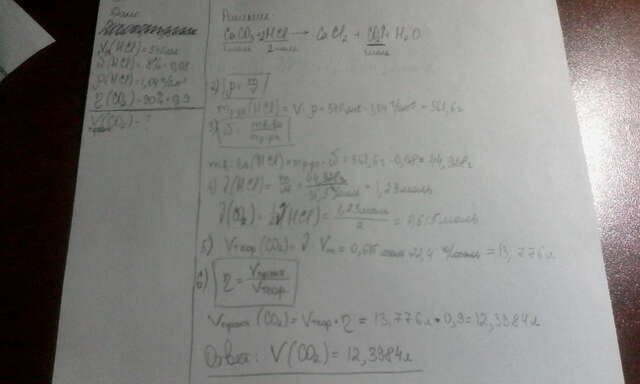 Дано:
V(HCl)=540мл
ω(HCl)=8%=0,08
ρ(HCl)=1,04г/см³
η(CO₂)=90%=0,9
V(CO₂)-?
Решение
CaCO₃+2HCl → CaCl₂ + CO₂↑ + H₂O
1моль 2моль 1моль
2) ρ=m/V
mр-ра(HCl)=V·ρ=540мл·1,04г/см³=561,6г
3) ω=mв-ва/mр-ра
mв-ва(HCl)=mр-ра·ω=561,6г·0,08=44,928г
4) ν(HCl)=m/M=44,928г/36,5г/моль=1,23моль
ν(CO₂)=½ν(HCl)=1,23моль/2=0,615моль
5) Vтеор(CO₂)=ν·Vm=0,615моль·22,4л/моль=13,776л
6) η=Vпракт/Vтеор
Vпракт(CO₂)=Vтеор·η=13,776л·0,9=12,3984л
Ответ: V(CO₂)=12,3984л